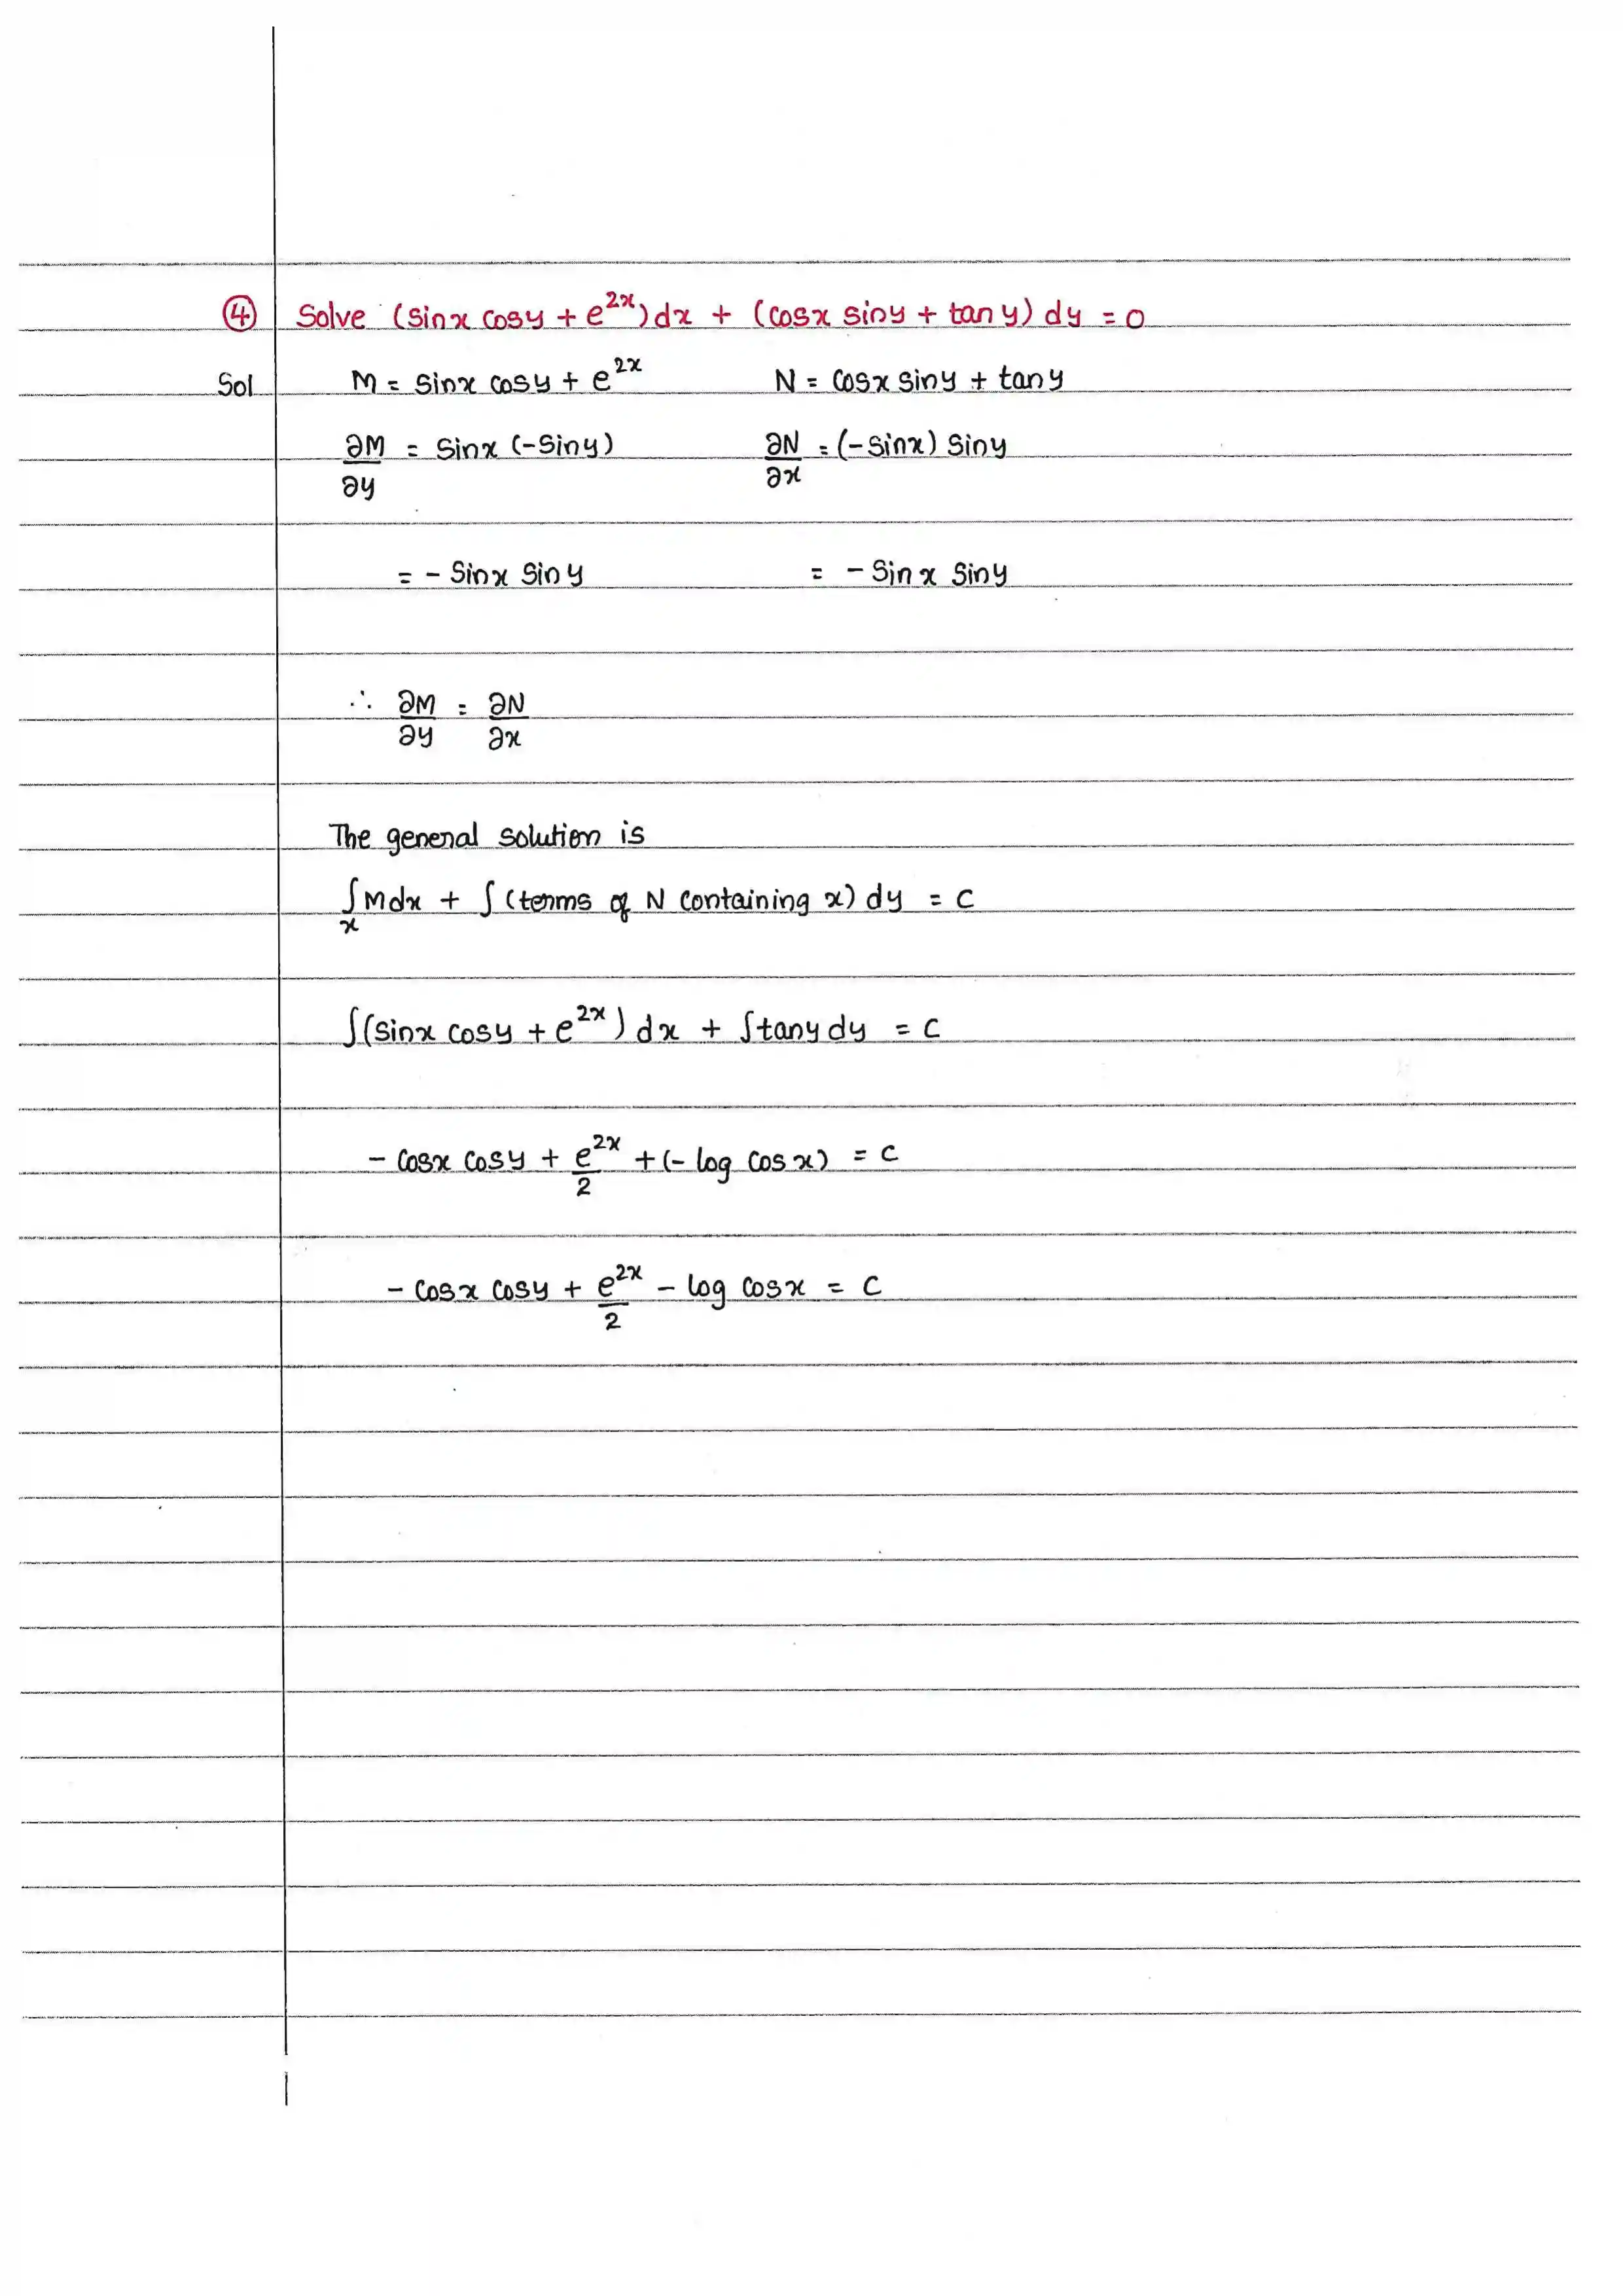 ④ Solve (sinx cosy + e^{2x})dx + (cosx siny + tan y) dy = 0
Sol M = sinx cosy + e^{2x} N = cosx siny + tany
∂M/∂y = sinx (-siny) ∂N/∂x = (-sinx) siny
= - sinx siny = - sinx siny
∴ ∂M/∂y = ∂N/∂x
The general solution is
∫_x Mdx + ∫ (terms of N containing x) dy = c
∫(sinx cosy + e^{2x}) dx + ∫tany dy = c
- cosx cosy + e^{2x}/2 + (- log cos x) = c
- cosx cosy + e^{2x}/2 - log cosx = c